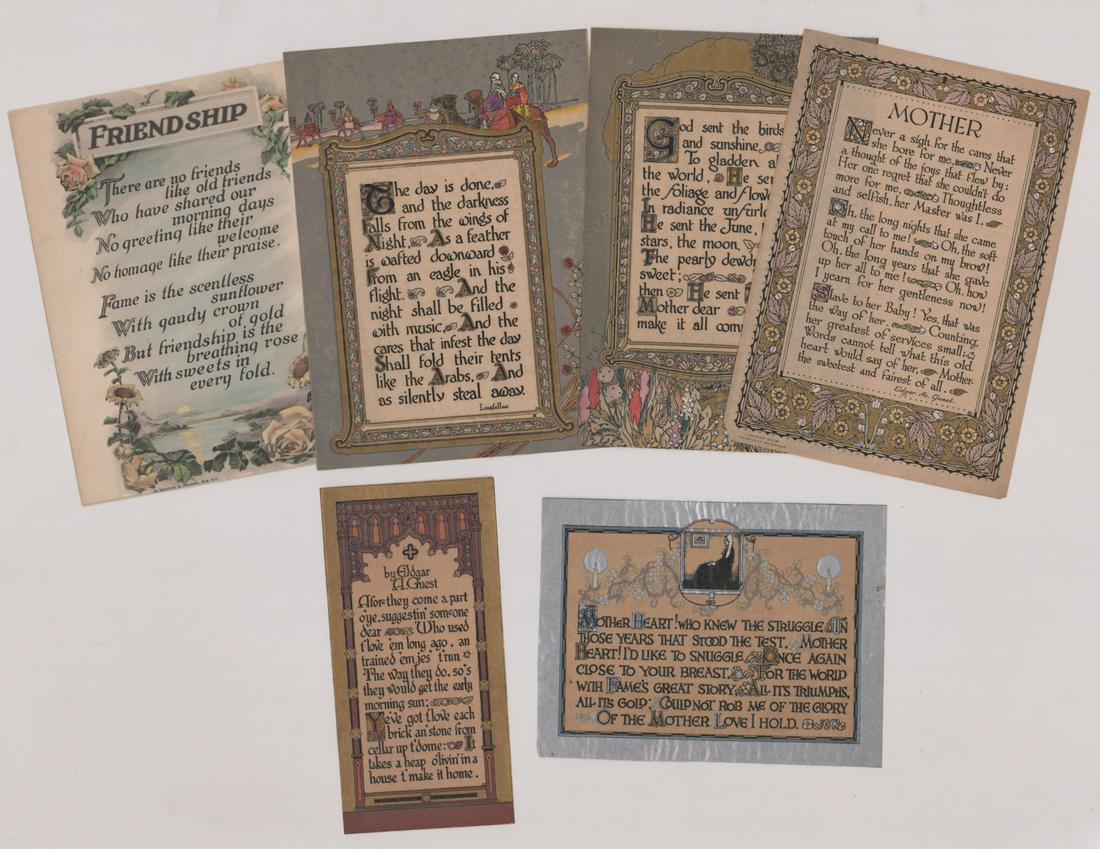 FRIENDSHIP
There are no friends
like old friends
Who have shared our
morning days
No greeting like their
welcome
No homage like their praise.
Fame is the scentless
sunflower
With gaudy crown
of gold
But friendship is the
breathing rose
With sweets in
every fold.
The day is done,
and the darkness
Falls from the wings of
Night, As a feather
is wafted downward
From an eagle in his
flight. And the
night shall be filled
with music, And the
cares that infest the day
Shall fold their tents
like the Arabs, And
as silently steal away.
Longfellow
God sent the birds
and sunshine,
To gladden a
the world, He se
the foliage and flow
In radiance unfurl
He sent the June,
stars, the moon,
The pearly dewdr
sweet;
then He sent
Mother dear
make it all com
MOTHER
Never a sigh for the cares that
she bore for me, Never
a thought of the joys that flew by;
Her one regret that she couldn't do
more for me, Thoughtless
and selfish, her Master was I.
Oh, the long nights that she came
at my call to me! Oh, the soft
touch of her hands on my brow!
Oh, the long years that she gave
up her all to me! Oh, how
I yearn for her gentleness now!
Slave to her Baby! Yes, that was
the way of her, Counting
her greatest of services small;
Words cannot tell what this old
heart would say of her, Mother-
the sweetest and fairest of all.
Edgar A. Guest.
by Edgar
A. Guest
Afore they come a part
o'ye, suggestin' someone
dear Who used
t'love 'em long ago, an
trained 'em jes' t'run
The way they do, so's
they would get the early
morning sun;
Ye've got t'love each
brick an' stone from
cellar up t'dome: It
takes a heap o'livin' in a
house t' make it home.
MOTHER HEART! WHO KNEW THE STRUGGLE IN
THOSE YEARS THAT STOOD THE TEST, MOTHER
HEART! I'D LIKE TO SNUGGLE ONCE AGAIN
CLOSE TO YOUR BREAST. FOR THE WORLD
WITH FAME'S GREAT STORY, ALL ITS TRIUMPHS,
ALL ITS GOLD; COULD NOT ROB ME OF THE GLORY
OF THE MOTHER LOVE I HOLD.